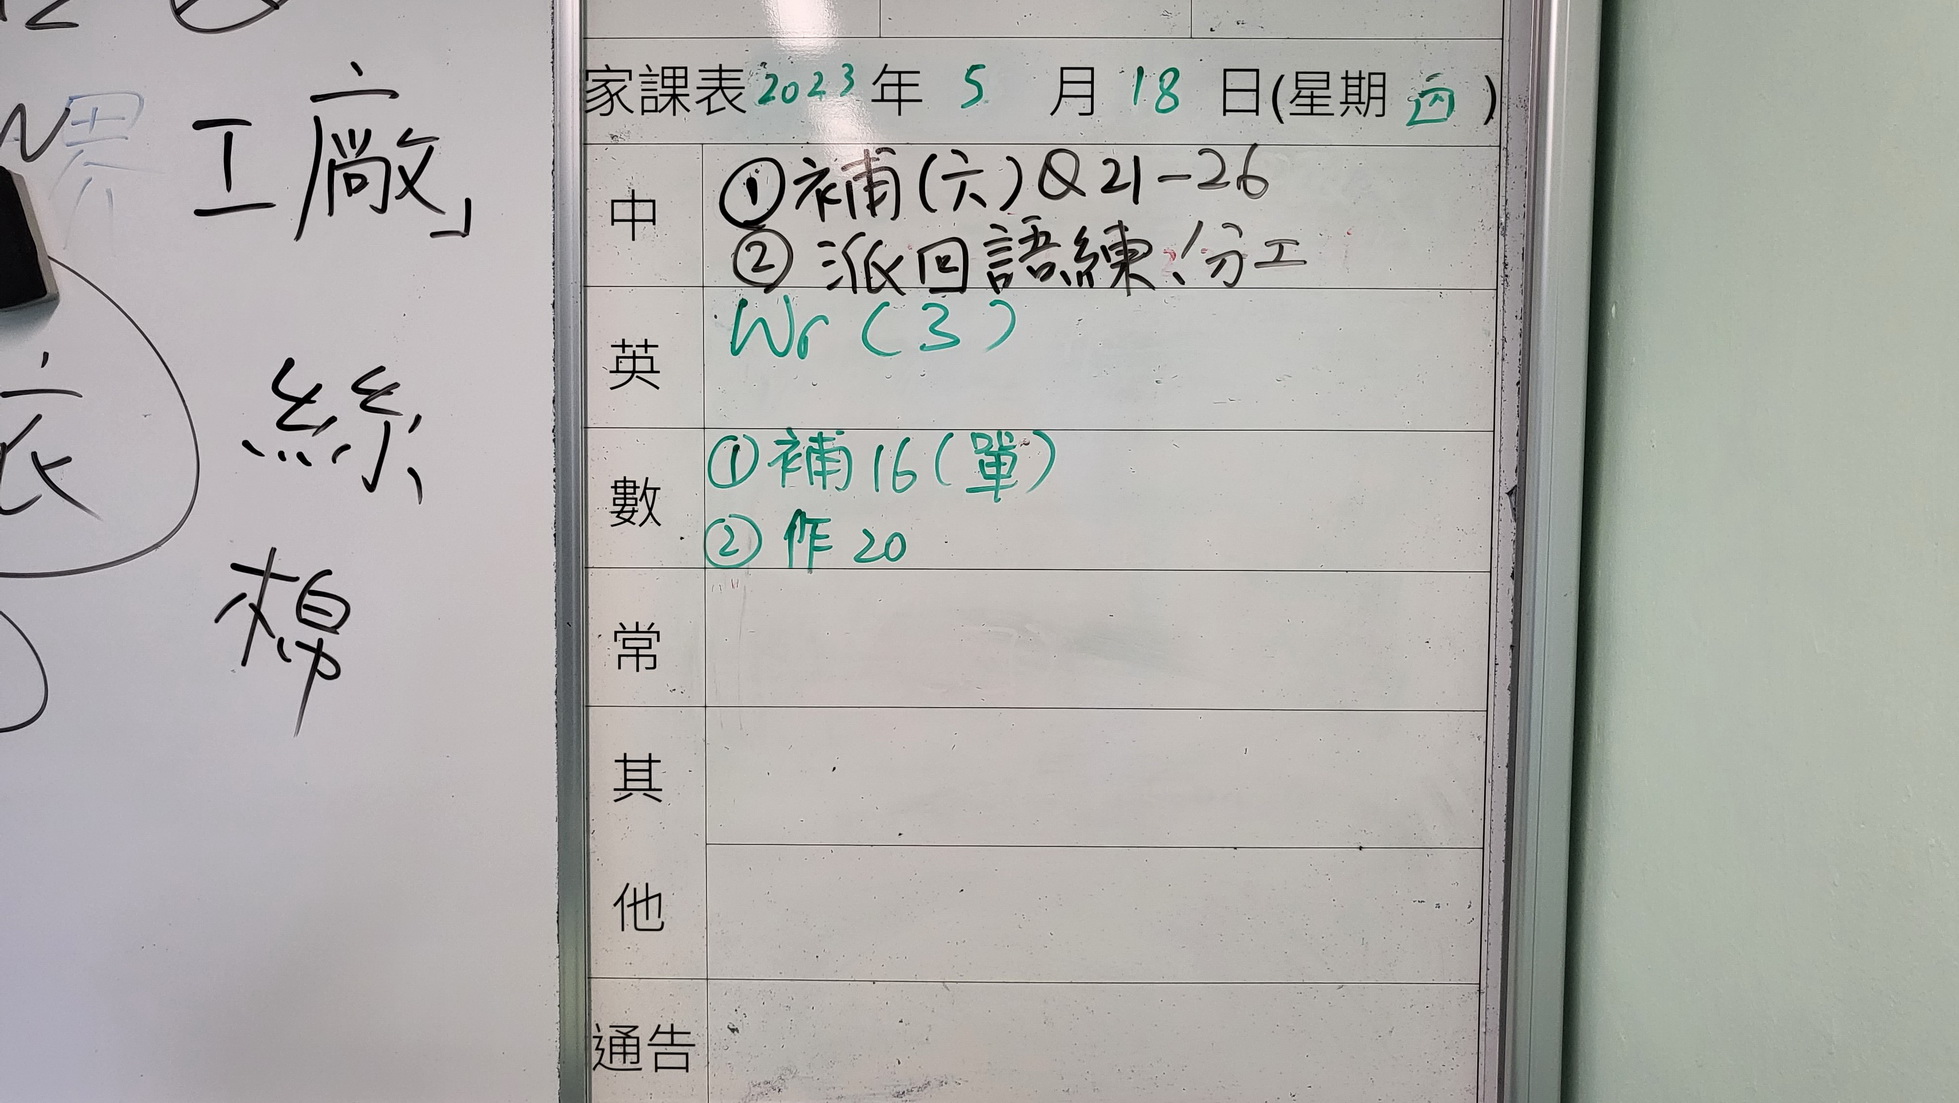 界
工廠」
衣
絲
棉
家課表2023年 5 月 18 日(星期 四 )
中
①補(六)Q21-26
②派回語練/分工
英
Wr(3)
數
①補16(單)
②作20
常
其
他
通告